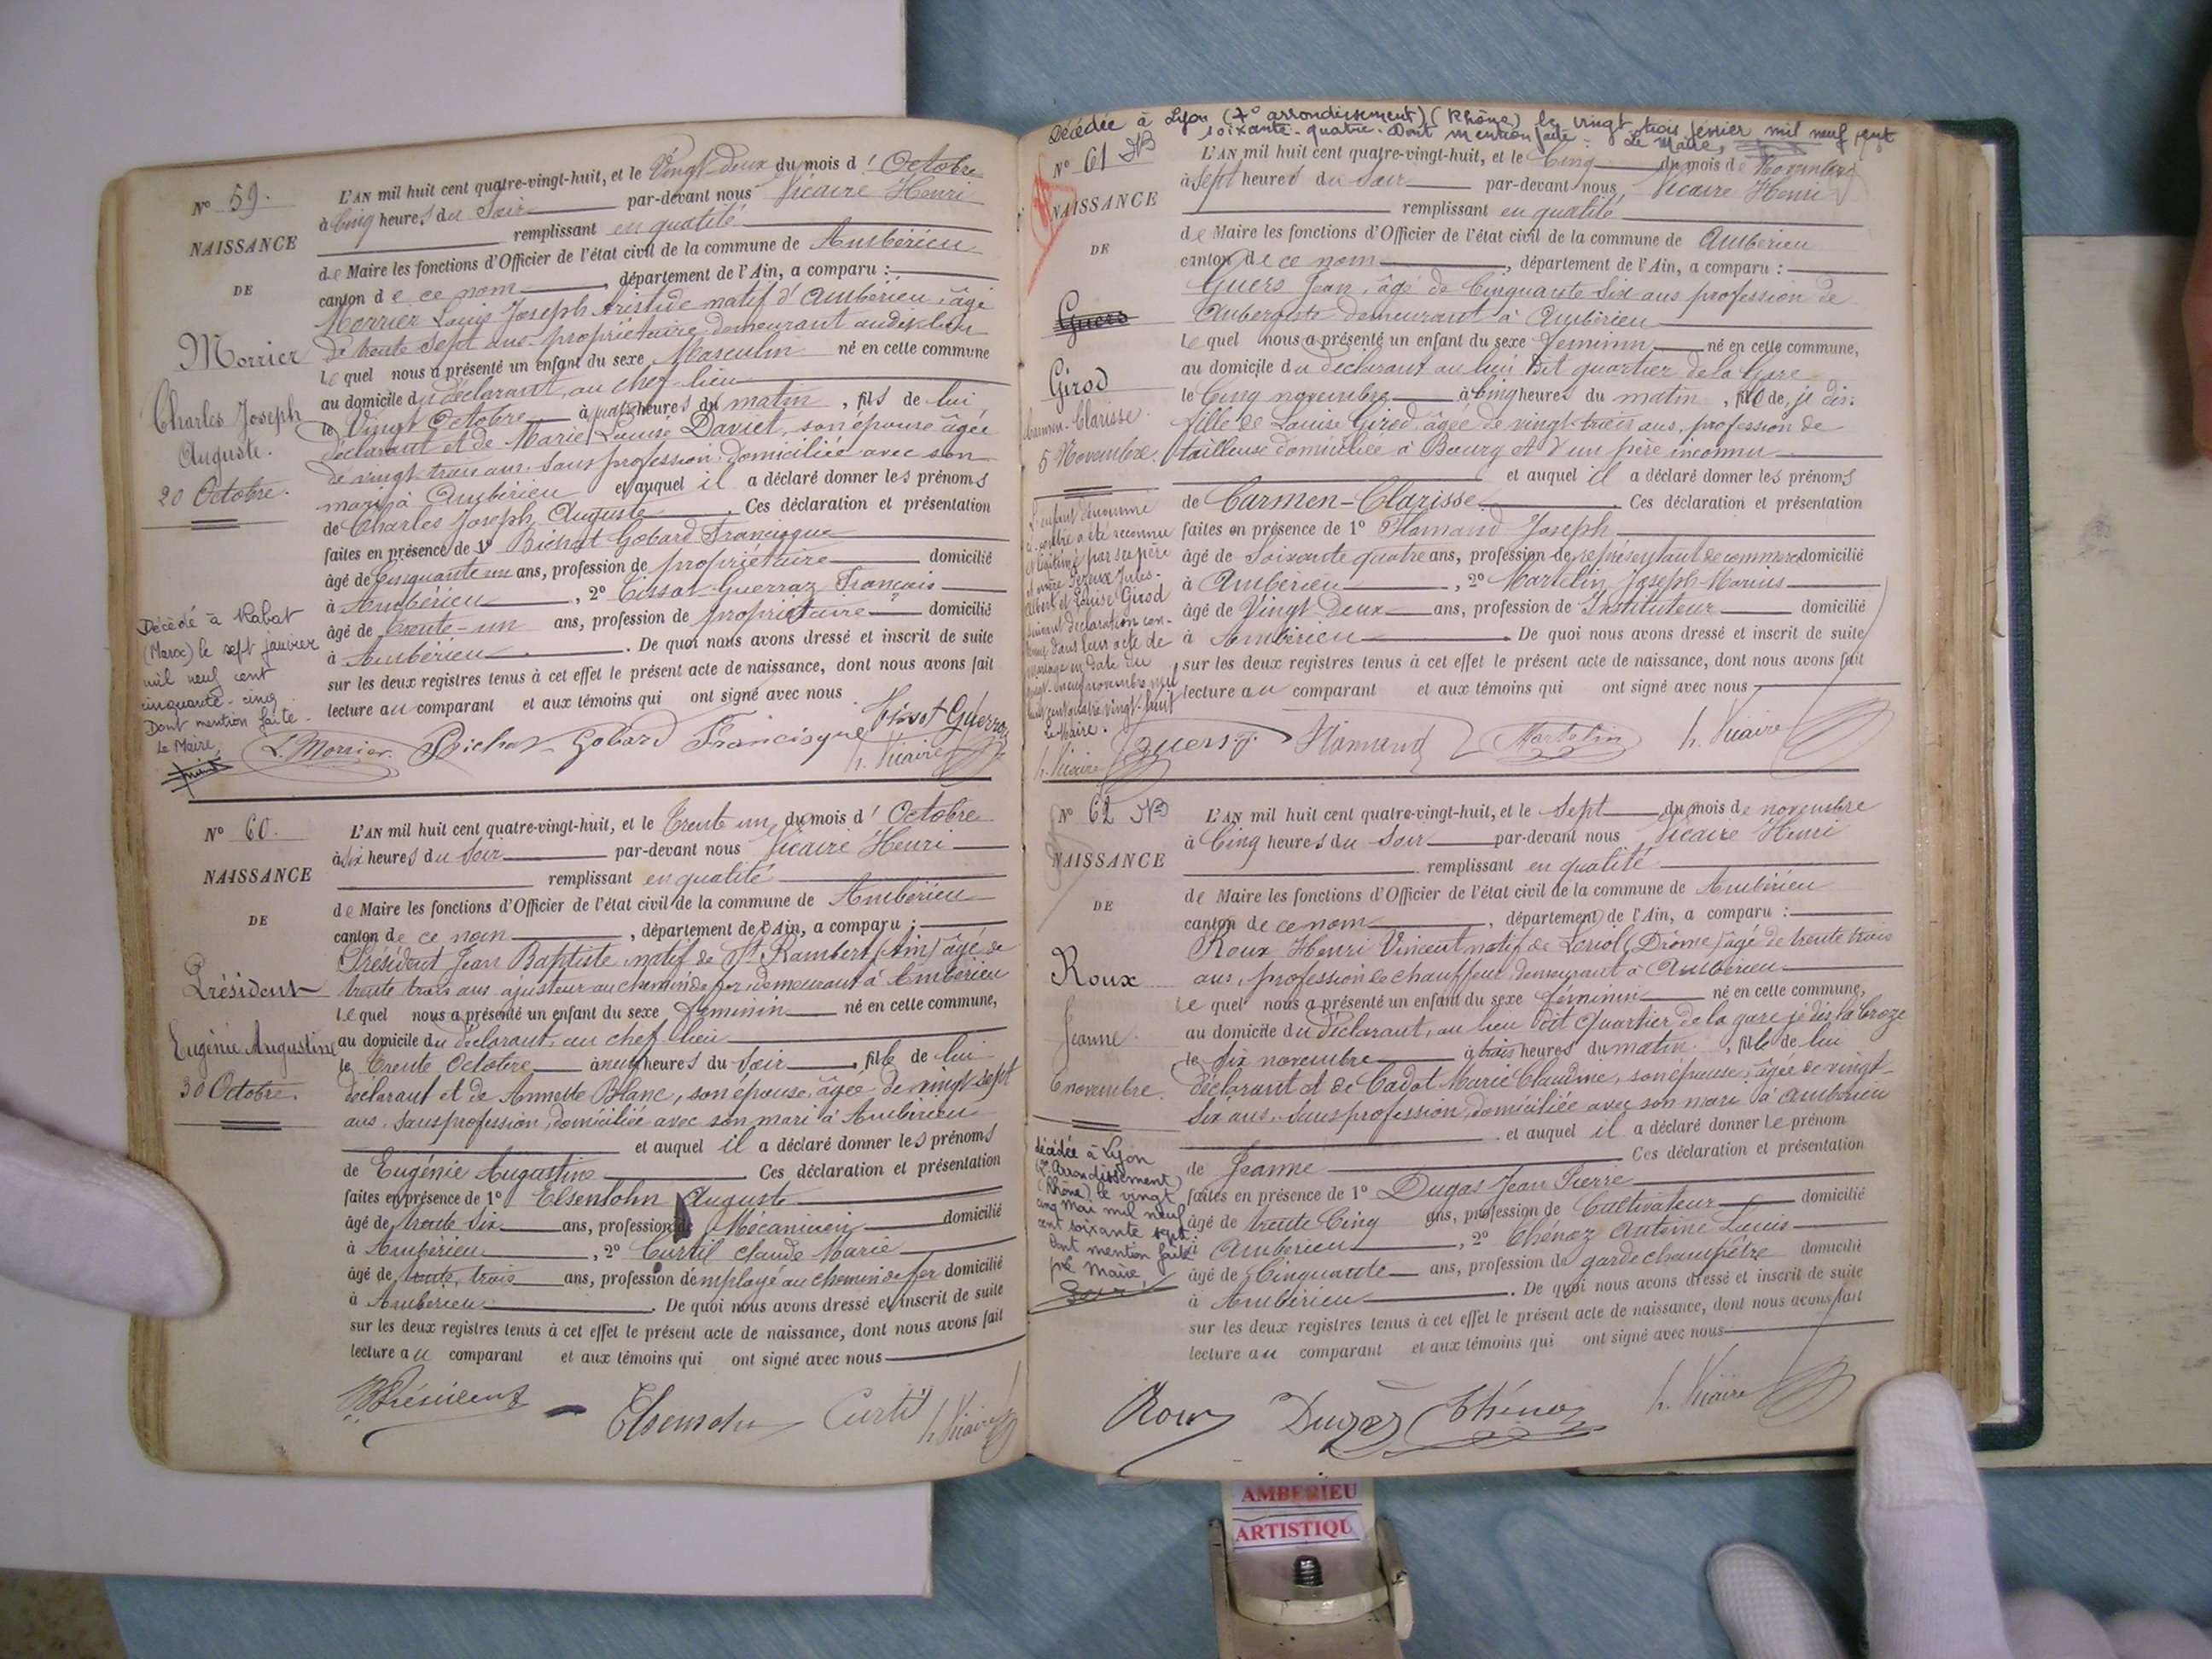 Nº 59.
NAISSANCE
DE
Morrier
Charles Joseph
Auguste.
20 Octobre.
L'AN mil huit cent quatre-vingt-huit, et le Vingt-deux du mois d'Octobre
à Cinq heures du Soir par-devant nous Vicaire Henri
remplissant en qualité
de Maire les fonctions d'Officier de l'état civil de la commune de Ambérieu
canton de ce nom, département de l'Ain, a comparu :
Morrier Louis Joseph Aristide natif d'Ambérieu, âgé
de trente sept ans propriétaire demeurant audit lieu
Lequel nous a présenté un enfant du sexe Masculin né en cette commune
au domicile du déclarant, au chef-lieu
le Vingt Octobre à heures du matin, fils de lui
déclarant et de Marie Louise Daviet, son épouse âgée
de vingt-trois ans. Sans profession domiciliée avec son
mari à Ambérieu et auquel il a déclaré donner les prénoms
de Charles Joseph Auguste. Ces déclaration et présentation
faites en présence de 1º Bichat Gobard Francisque
âgé de Cinquante un ans, profession de propriétaire domicilié
à Ambérieu, 2º Tissot Guerraz François
âgé de trente-un ans, profession de propriétaire domicilié
à Ambérieu. De quoi nous avons dressé et inscrit de suite
sur les deux registres tenus à cet effet le présent acte de naissance, dont nous avons fait
lecture au comparant et aux témoins qui ont signé avec nous
Décédé à Rabat
(Maroc) le sept janvier
mil neuf cent
cinquante-cinq
Dont mention faite.
Le Maire,
L. Morrier Bichat Gobard Francisque Tissot Guerraz
h. Vicaire
Nº 60.
NAISSANCE
DE
Président
Eugénie Augustine
30 Octobre.
L'AN mil huit cent quatre-vingt-huit, et le Trente un du mois d'Octobre
à six heures du soir par-devant nous Vicaire Henri
remplissant en qualité
de Maire les fonctions d'Officier de l'état civil de la commune de Ambérieu
canton de ce nom, département de l'Ain, a comparu :
Président Jean Baptiste natif de St Rambert (Ain) âgé de
trente trois ans ajusteur au chemin de fer, demeurant à Ambérieu
Lequel nous a présenté un enfant du sexe féminin né en cette commune,
au domicile du déclarant, au chef lieu
le Trente Octobre à neuf heures du soir, fille de lui
déclarant et de Annette Blanc, son épouse, âgée de vingt-sept
ans. Sans profession, domiciliée avec son mari à Ambérieu
et auquel il a déclaré donner les prénoms
de Eugénie Augustine Ces déclaration et présentation
faites en présence de 1º Elsensohn Auguste
âgé de trente six ans, profession de Mécanicien domicilié
à Ambérieu, 2º Curtil Claude Marie
âgé de trente trois ans, profession d'employé au chemin de fer domicilié
à Ambérieu. De quoi nous avons dressé et inscrit de suite
sur les deux registres tenus à cet effet le présent acte de naissance, dont nous avons fait
lecture au comparant et aux témoins qui ont signé avec nous
Président Elsensohn Curtil h. Vicaire
Décédée à Lyon (7º arrondissement) (Rhône) le vingt trois février mil neuf cent
soixante-quatre. Dont mention faite. Le Maire,
Nº 61
NAISSANCE
DE
Guers
Girod
Carmen-Clarisse.
5 Novembre.
L'AN mil huit cent quatre-vingt-huit, et le Cinq du mois de Novembre
à sept heures du soir par-devant nous Vicaire Henri
remplissant en qualité
de Maire les fonctions d'Officier de l'état civil de la commune de Ambérieu
canton de ce nom, département de l'Ain, a comparu :
Guers Jean, âgé de Cinquante Six ans profession de
Aubergiste demeurant à Ambérieu
Lequel nous a présenté un enfant du sexe féminin né en cette commune,
au domicile du déclarant au lieu dit quartier de la Gare
le Cinq novembre à Cinq heures du matin, fille de, je dis:
fille de Louise Girod, âgée de vingt-trois ans, profession de
tailleuse domiciliée à Bourg et d'un père inconnu
et auquel il a déclaré donner les prénoms
de Carmen-Clarisse. Ces déclaration et présentation
faites en présence de 1º Flamand Joseph
âgé de Soixante quatre ans, profession de représentant de commerce domicilié
à Ambérieu, 2º Martelin Joseph-Marius
âgé de Vingt Deux ans, profession de Instituteur domicilié
à Ambérieu. De quoi nous avons dressé et inscrit de suite
sur les deux registres tenus à cet effet le présent acte de naissance, dont nous avons fait
lecture au comparant et aux témoins qui ont signé avec nous
L'enfant dénommé
ci-contre a été reconnu
et légitimé par ses père
et mère Jules-
Albert et Louise Girod
suivant déclaration con-
tenue dans leur acte de
mariage en date du
novembre mil
huit cent quatre vingt-huit
Le Maire.
h. Vicaire
Guers J. Flamand Martelin h. Vicaire
Nº 62
NAISSANCE
DE
Roux
Jeanne
6 novembre.
L'AN mil huit cent quatre-vingt-huit, et le Sept du mois de novembre
à Cinq heures du Soir par-devant nous Vicaire Henri
remplissant en qualité
de Maire les fonctions d'Officier de l'état civil de la commune de Ambérieu
canton de ce nom, département de l'Ain, a comparu :
Roux Henri Vincent natif de Loriol (Drôme) âgé de trente trois
ans, profession de chauffeur, demeurant à Ambérieu
Lequel nous a présenté un enfant du sexe féminin né en cette commune,
au domicile du déclarant, au lieu dit Quartier de la gare je dis la Croze
le Six novembre à trois heures du matin, fille de lui
déclarant et de Cadot Marie Claudine, son épouse, âgée de vingt-
six ans. Sans profession, domiciliée avec son mari à Ambérieu
et auquel il a déclaré donner le prénom
de Jeanne Ces déclaration et présentation
faites en présence de 1º Dugas Jean Pierre
âgé de trente Cinq ans, profession de Cultivateur domicilié
à Ambérieu, 2º Thénoz Antoine Louis
âgé de Cinquante ans, profession de garde champêtre domicilié
à Ambérieu. De quoi nous avons dressé et inscrit de suite
sur les deux registres tenus à cet effet le présent acte de naissance, dont nous avons fait
lecture au comparant et aux témoins qui ont signé avec nous
décédée à Lyon
(2º Arrondissement)
(Rhône) le vingt
cinq Mai mil neuf
cent soixante sept.
Dont mention faite
Le Maire,
Roux Dugas Thénoz h. Vicaire
AMBERIEU
ARTISTIQU